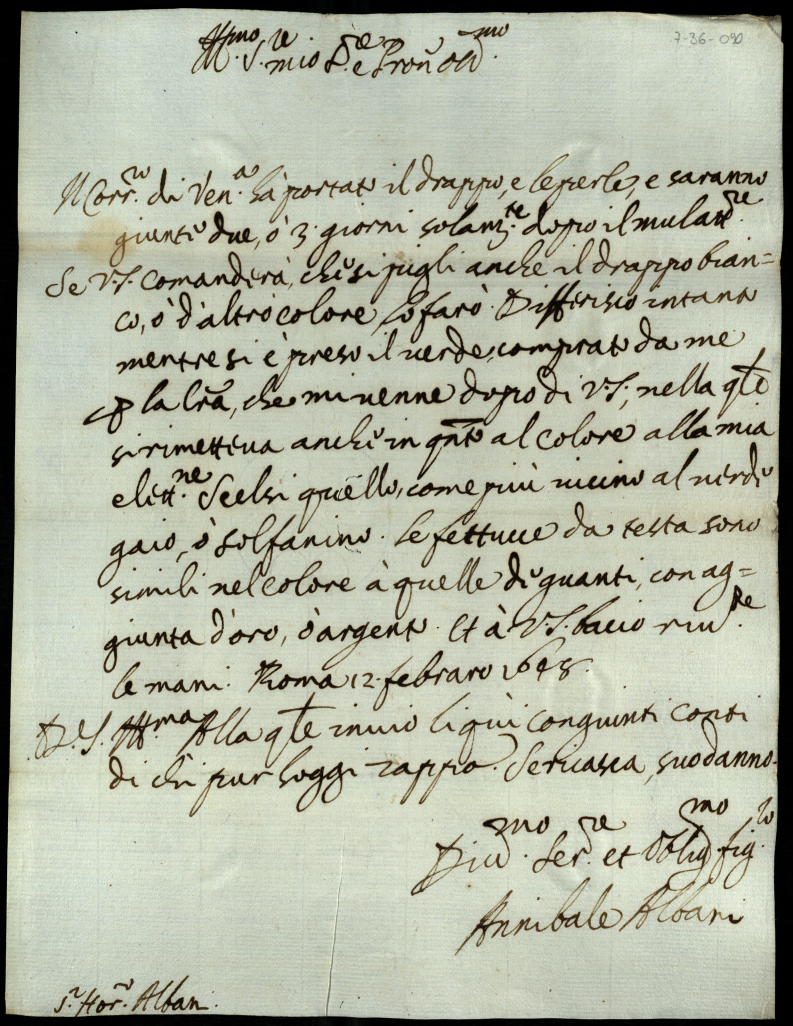 7-36-090
Ill.mo S.re mio S.re e Pron Oss.mo
Il Corr.ro di Ven.a hà portato il drappo, e le perle, e saranno
giunte due, ò 3. giorni solam.te dopo il mulatt.re
Se V.S. comanderà, che si pigli anche il drappo bian=
co, ò d'altro colore, lo farò. Differisco intanto
mentre si è preso il verde, comprato da me
p la lrã, che mi venne dopo di V.S., nella qlẽ
si rimetteva anche in qntõ al colore alla mia
elett.ne Scelsi quello, come più vicino al verde
gaio, ò solfanino. Le fettucce da testa sono
simili nel colore à quelle de guanti, con ag=
giunta d'oro, ò argento. Et à V.S. bacio riv.te
le mani. Roma 12. febraro 1648.
D. V.S. Ill.ma Alla qlẽ invio li quì congiunti conti
di chi pur hoggi suo danno.
Div.mo Ser.re et Oblig.mo fig.lo
Annibale Albani
S.r Hor.o Albani.